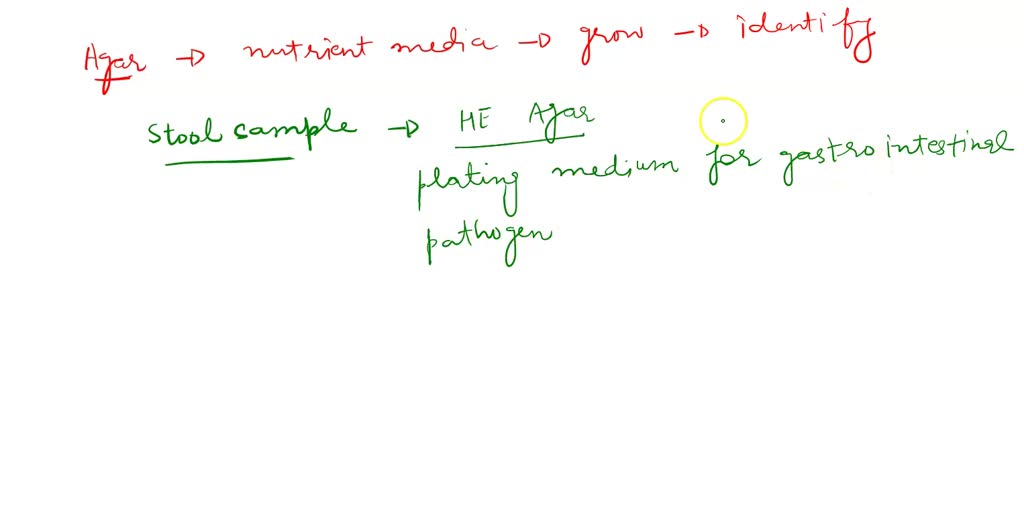 Agar → nutrient media → grow → identify
Stool sample → HE Agar
plating medium for gastrointestinal
pathogen